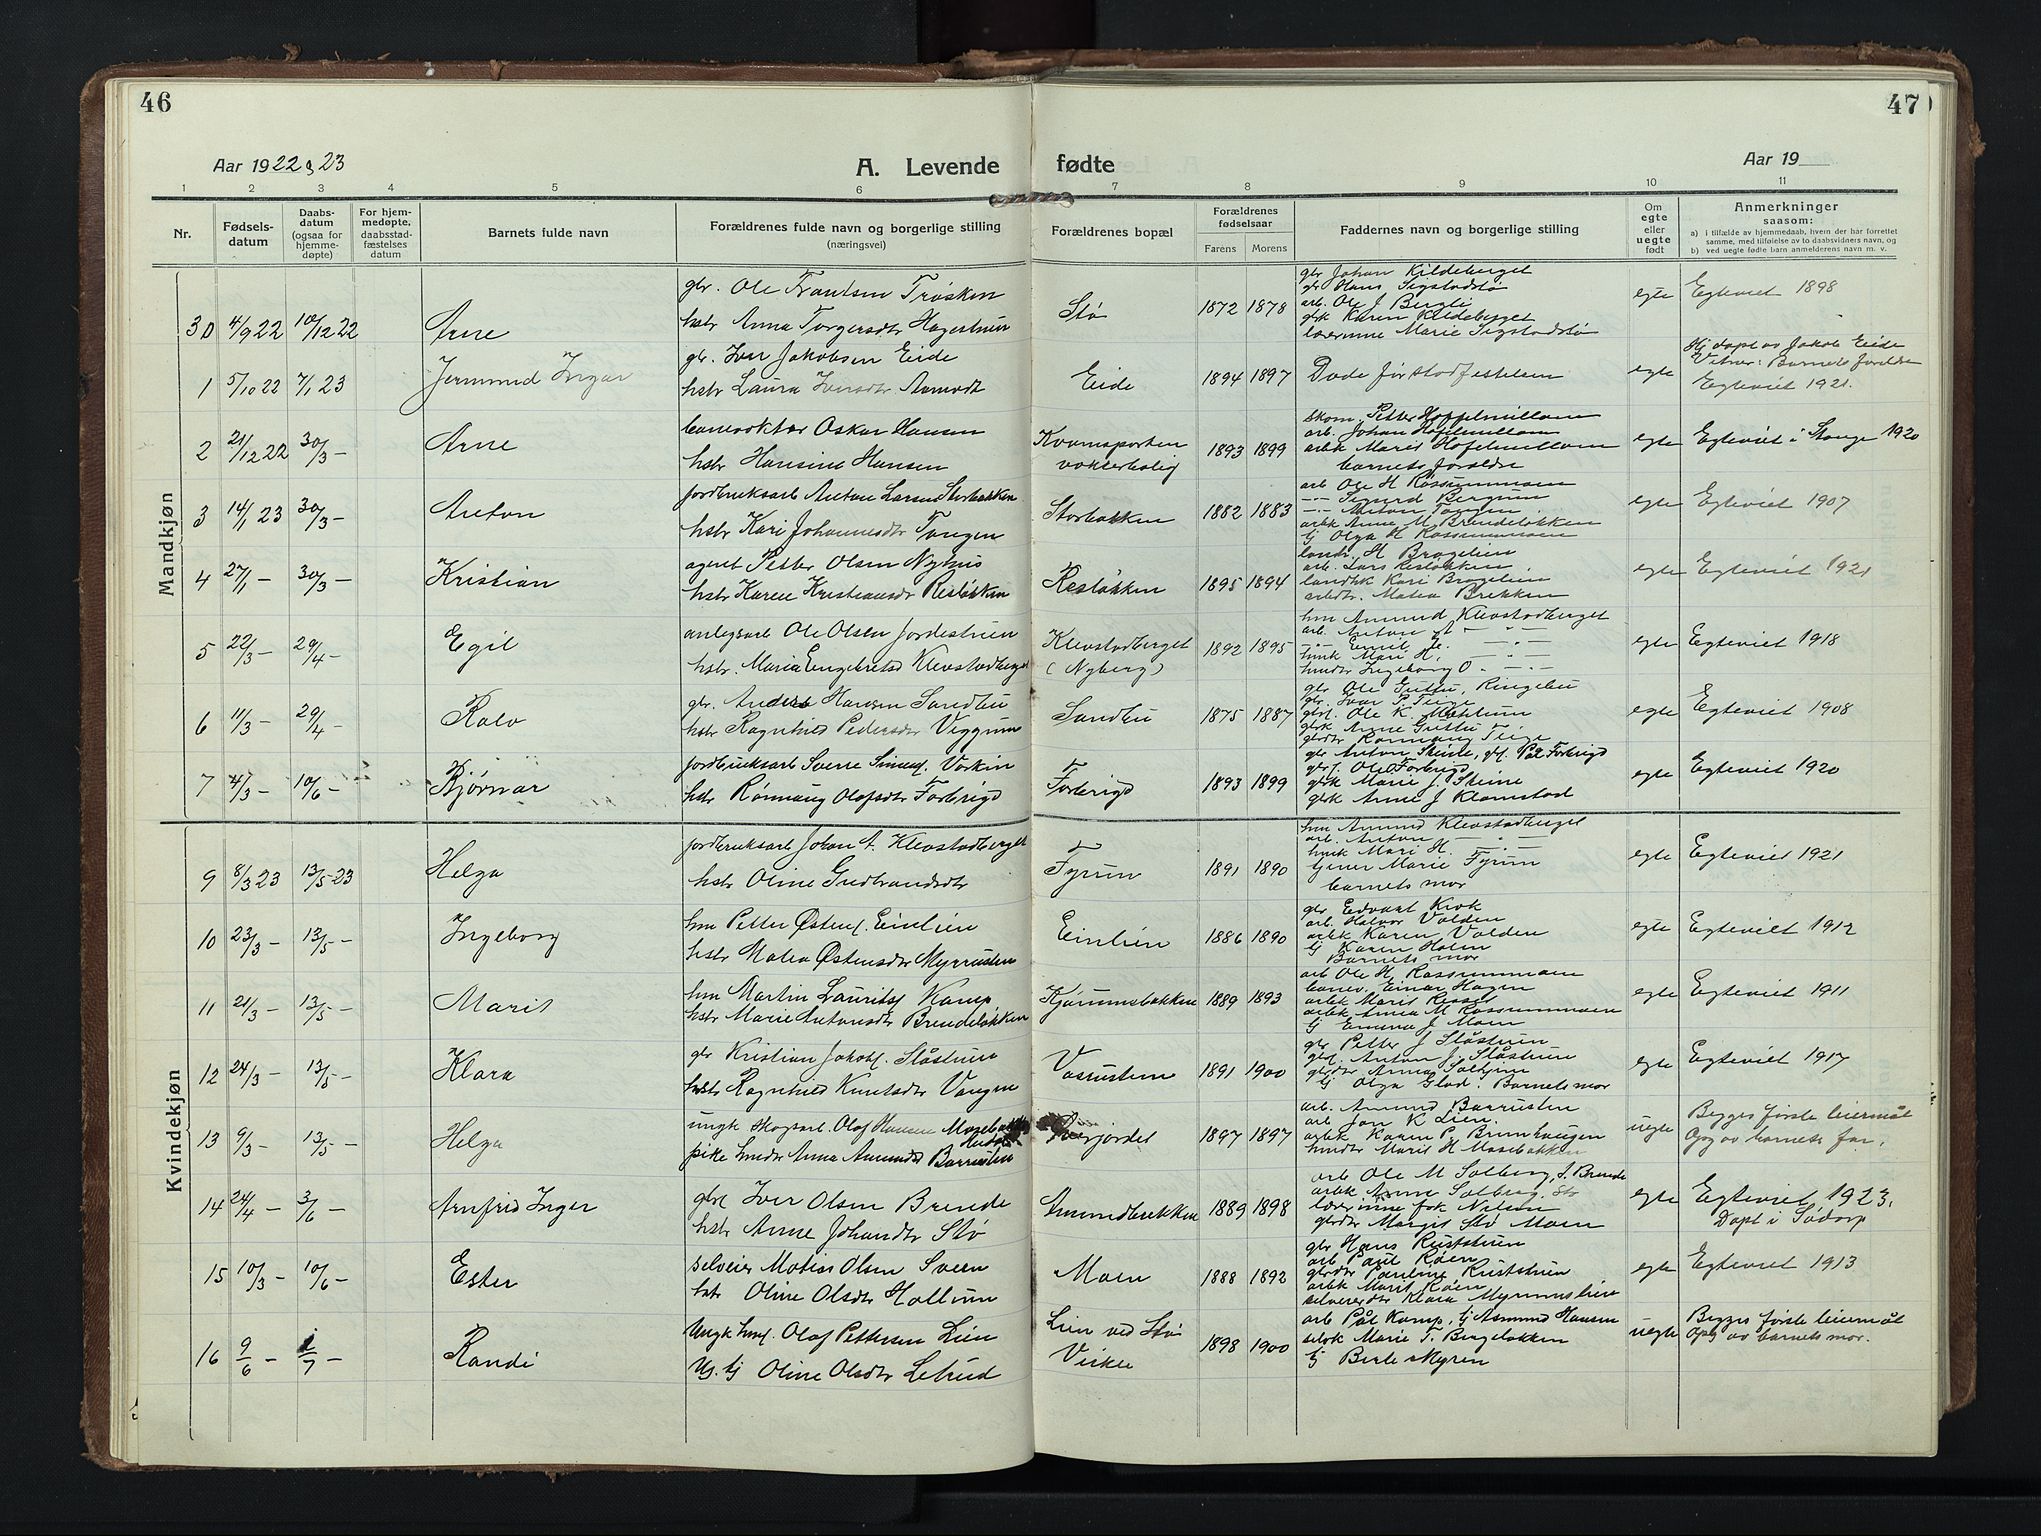 46
47
Aar 1922 & 23
A. Levende
fødte
Aar 19
1 2 3 4 5 6 7 8 9 10 11
Nr.
Fødsels-
datum
Daabs-
datum
(ogsaa for
hjemme-
døpte)
For hjem-
medøpte,
daabsstad-
fæstelses
datum
Barnets fulde navn
Forældrenes fulde navn og borgerlige stilling
(næringsvei)
Forældrenes bopæl
Forældrenes
fødselsaar
Farens Morens
Faddernes navn og borgerlige stilling
Om
egte
eller
uegte
født
Anmerkninger
saasom:
a) i tilfælde av hjemmedaab, hvem der har forrettet
samme, med tilføielse av to daabsvidners navn, og
b) ved uegte fødte barn anmelderens navn m. v.
Mandkjøn
30 4/9 22 10/12 22 Arne
gbr. Ole Frantsen Trøsken
hstr Anna Torgersdtr Hagestuen
Stø 1872 1878
gbr Johan Kildeberget
gbr Hans Sigstadstø
arb. Ole J Bergli
gbk Karen Kildeberget
lærerinne Marie Sigstadstø
egte Egteviet 1898
1 5/10 22 7/1 23 Jermund Ingar
gbr. Iver Jakobsen Eide
hstr Laura Iversdtr Aamodt
Eide 1894 1897
Døde før stadfestelsen
egte
Hj døpt av Jakob Eide
Vitner: Barnets foreldre
Egteviet 1921.
2 21/12 22 30/3 – Arne
banevokter Oskar Hansen
hstr Hansine Hansen
Kvamsporten
vokterbolig
1893 1899
skom. Petter Hoffelmillom
arb. Johan Hoffelmillom
arbk Marit Hoffelmillom
barnets foreldre
egte Egteviet i Stange 1920
3 14/1 23 30/3 – Anton
jordbruksarb Anton Larsen Storbakken
hstr Kari Johannesdtr Tangen
Storbakken 1882 1883
arb Ole H Rassummoen
-"- Sigurd Bergum
-"- Anton Tangen
arbk Anne M Brendeløkken
tj Olga H Rassummoen
egte Egteviet 1907
4 27/1 – 30/3 – Kristian
agent Petter Olsen Nyhus
hstr Karen Kristiansdtr Resløkken
Resløkken 1895 1894
landh. H Brageliens
arb. Lars Resløkken
landhk Kari Bragelien
arbdtr. Matea Brekken
egte Egteviet 1921
5 22/3 – 29/4 – Egil
anlegsarb Ole Olsen Jordestuen
hstr. Maria Engebretsd Klevstadberget
Klevstadberget
(Nyberg)
1892 1895
hm Amund Klevstadberget
arb. Anton A – " –
-"- Emil E. – " –
hmk Mari H. – " –
hmdtr Ingeborg O – " –
egte Egteviet 1918
6 11/3 – 29/4 – Rolv
gbr. Anders Hansen Sandbu
hstr Ragnhild Pedersdtr Viggum
Sandbu 1875 1887
gbr Ole Guttu, Ringebu
gbr. Ivar P. Teige
gbrf. Ole K. Melilum
gbrk Anne Guttu
gbrdtr Rønnaug Teige
egte Egteviet 1908
7 4/3 – 10/6 – Bjørnar
jordbruksarb Sverre Simens. Vorkin
hstr Rønnaug Olafsdtr Forbrigd
Forbrigd 1893 1899
gbr Anton Skeine, gbf. Pål Forbrigd
gbrf. Ole Forbrigd
gbrk Marie J. Skeine
gbrk Anne J Klomstad
egte Egteviet 1920
Kvindekjøn
9 8/3 23 13/5 – 23 Helga
jordbruksarb Johan A. Klevstadberget
hstr Oline Gudbrandsdtr
Fyrun 1891 1890
hm Amund Klevstadberget
arb. Anton – " –
hmk Mari H. – " –
tjener Marie Fyrun
barnets mor
egte Egteviet 1921
10 23/3 – 13/5 – Ingeborg
hm Petter Østens. Einlien
hstr Matea Østensdtr Myrrusten
Einlien 1886 1890
gbr Edvart Krok
arb. Halvor Volden
arbk Karen Volden
tj Karen Holen
Barnets mor
egte Egteviet 1912
11 21/3 – 13/5 – Marit
hm Martin Lauritss Kamp
hstr Marie Antonsdtr Brendeløkken
Kjørumsbakken 1889 1893
arb Ole H. Rassummoen
banev. Einar Hagen
arbk Marit Resset
arbk Anna M Rassummoen
tj Emma J Moen
egte Egteviet 1911
12 24/3 – 13/5 – Klara
gbr Kristian Jakobs. Slåstuen
hstr Ragnhild Knutsdtr Vangen
Vasrusten 1891 1900
gbr Petter J Slåstuen
gbrf. Anton J. Slåstuen
gbrdtr Anna Solhjem
tj Olga Glad. Barnets mor
egte Egteviet 1917
13 9/3 – 13/5 – Helga
ungk skogsarb. Olaf Hansen Mosebakken
pike hmdtr Anna Amundsd Barrusten
1897 1897
arb. Amund Barrusten
arb Jon K Lien
arbk Karen P. Brunhaugen
hmdtr Marit H Mosebakken
uegte
Begges første leiermål
Opg av barnets far.
14 24/4 – 3/6 – Arnfrid Inger
gbrf Iver Olsen Brende
hstr Anne Johansdtr Stø
Amundbrekken 1889 1898
arb Ole M Solberg, S. Brende
arbk Anne Solberg, Stø
lærerinne frk Nilsen
gbrdtr Margit Stø Moen
egte
Egteviet 1923.
Døpt i Sødorp
15 10/3 – 10/6 – Ester
selveier Matias Olsen Sveen
hstr Oline Olsdtr Hollum
Moen 1888 1892
gbr Hans Ruststuen
arb Paul Røen
gbrdtr Pauline Ruststuen
arbk Marit Røen
selveierdtr Klara Myrumslien
egte Egteviet 1913
16 9/6 – 1/7 – Randi
Ungk hms. Olaf Pettersen Lien
Ug. tj Oline Olsdtr Letrud
Lien ved Stø
Veikle
1898 1900
arb Pål Kamp, tj Asmund Hansen
selvk Marie T. Bergeløkken
tj Berte Myren
uegte
Begges første leiermål
Opg av barnets mor.